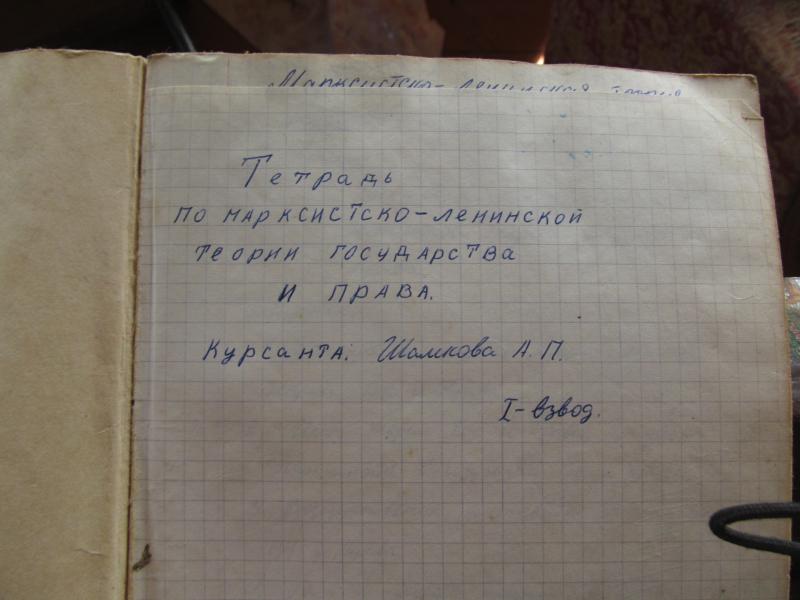 Марксистско-ленинская теория
Тетрадь
по марксистско-ленинской
теории государства
и права.
Курсанта: Шамкова А.П.
I-взвод.